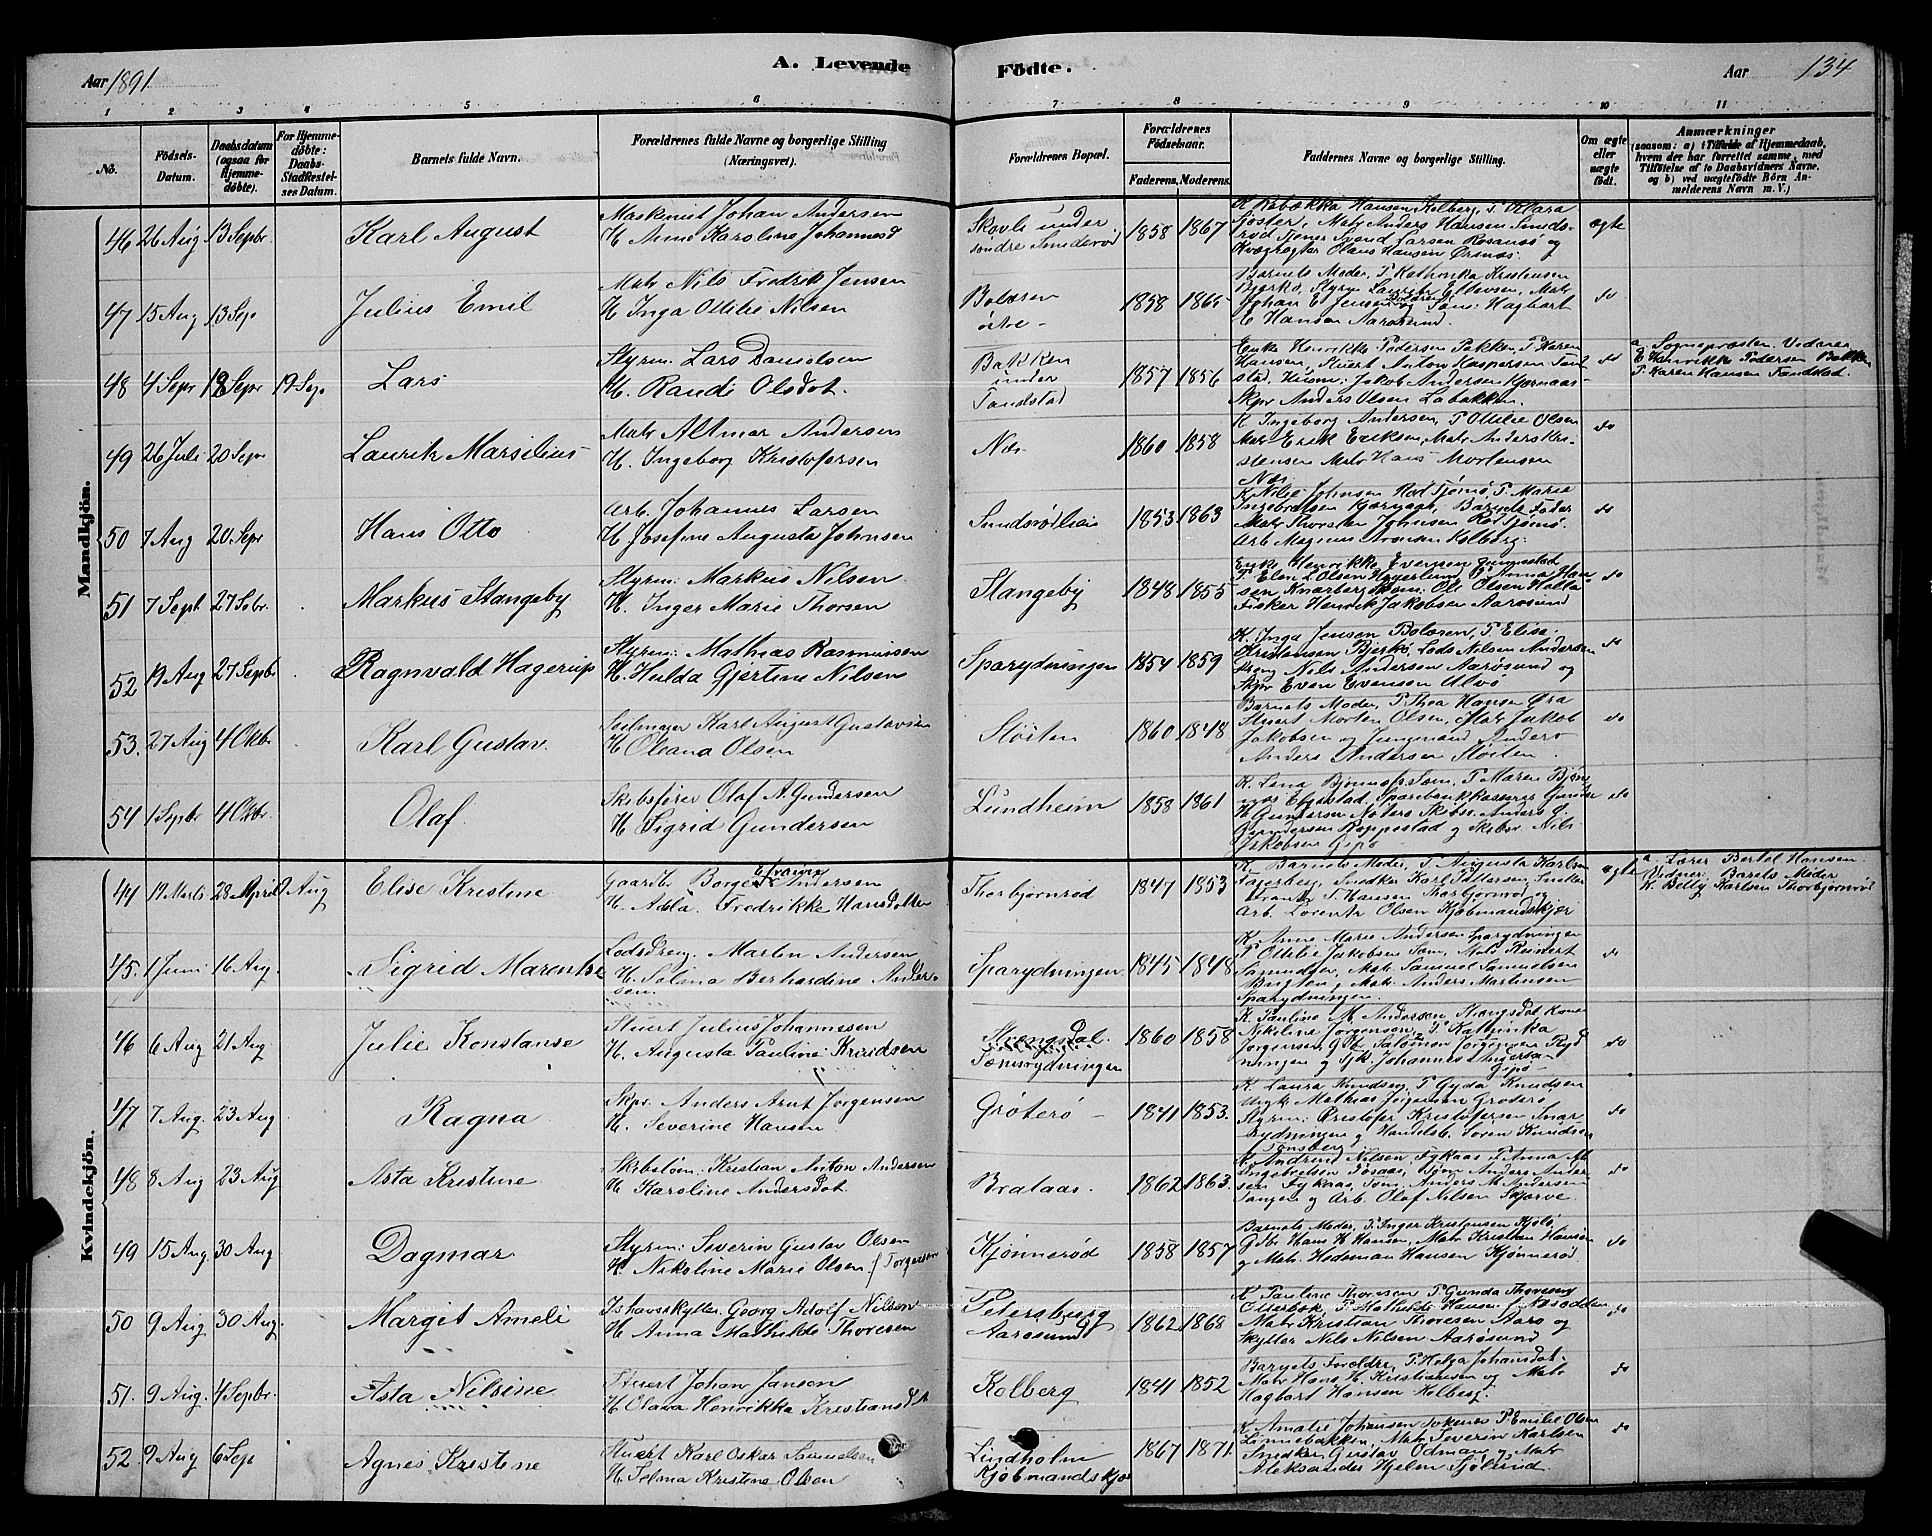 Aar 1891
A. Levende
Födte.
Aar 134
1 2 3 4 5 6 7 8 9 10 11
No.
Födsels-Datum.
Daabsdatum (ogsaa for Hjemmedöbte).
For Hjemmedöbte: Daabs-Stadfæstelses Datum.
Barnets fulde Navn.
Forældrenes fulde Navne og borgerlige Stilling (Næringsvei).
Forældrenes Bopæl.
Forældrenes Födselsaar.
Faderens. Moderens.
Faddernes Navne og borgerlige Stilling.
Om ægte eller uægte födt.
Anmærkninger
(saasom: a) i Tilfælde af Hjemmedaab, hvem der har forrettet samme, med Tilföielse af to Daabsvidners Navne. og b) ved uægtefödte Börn Anmelderens Navn m. V.)
Mandkjön.
46 26 Aug 13 Sepbr. Karl August
Maskinist Johan Andersen
H. Anne Karoline Johannesd
Skovli under
söndre Smiderød
1858 1867
K Rebækka Hansen Kolberg, P. Klara
Sjøster, Matr Anders Hansen Smids-
rød Tjener Svend Larsen Rosanes og
Kvægrøgter Olaus Hansen Ørsnes.
ægte
47 15 Aug 13 Sep Julius Emil
Matr Nils Fredrik Jensen
H Inga Ottilie Nilsen
Bolæren
østre
1858 1865
Barnets Moder, P. Kathinka Kristensen
Bjerkø, Styrm Laurits Ellevsen, Matr
Johan E Jensen Bolæren og Tøm: Hagbart
E Hansen Aarøsund.
do
48 4 Sepr 18 Sepr 19 Sep Lars
Styrm: Lars Danielsen
H. Randi Olsdot.
Bakken
under
Tandstad
1857 1856
Enke Henrikke Pedersen Bakken, P. Karen
Hansen, Stuert Anton Kaspersen Tand
stad, Tilsm: Jakob Andersen Kjærnaas-
Skpr Anders Olsen Labakken.
do
a. Sogneprsten. Vidner
E Henrikke Pedersen Bakken
P. Karen Hansen Tandstad.
49 26 Juli 20 Sepr Laurits Marsilius
Matr Altmar Andersen
H. Ingeborg Kristofersen
Næs
1860 1858
K Ingeborg Andersen, P Ottilie Olsen
Matr Erik Eriksen, Matr Anders Kri-
stensen Matr Hans Mortensen
Næs
do
50 7 Aug 20 Sepr Hans Otto
Arb. Johannes Larsen
H Josefine Augusta Johnsen
Smidsrødhei
1853 1863
K Nilie Johnsen Rød Tjømø, P. Marie
Ingebretsen Kjærnaas, Barnets Fader
Matr Thorsten Johnsen Rød Tjømø.
Arb Magnus Iversen Kolberg.
do
51 7 Septb 27 Sebr. Markus Stangeby
Styrm: Markus Nilsen
H. Inger Marie Thorsen
Stangeby
1848 1855
Enke Henrikke Evensen
P. Elen L Olsen Høgeslund, P Anna Han
sen Knarberg, Skom: Ole Olsen Holta
Fisker Henrik Jakobsen Aarøsund
do
52 19 Aug 27 Sepbr Ragnvald Hagerup
Styrm: Mathias Rasmussen
H. Hulda Gjertine Nilsen
Sparydningen
1854 1859
K. Inga Jensen Bolæren, P. Elise
Kristensen Bjerkø, Lods Nilsen Andersen
dreng Nils Andersen Aarøsund og
Skpr Even Evensen Ulvø
do
53. 27 Aug 4 Okbr Karl Gustav.
Seilmager Karl August Gustavsen
H Oleana Olsen
Sløiten
1860 1848
Barnets Moder, P. Thea Hansen Øra
Stuert Morten Olsen, Matr Jakob
Jakobsen og Jungmand Anders
Anders Andersen Sløiten.
do
54 1 Sepbr 4 Okbr. Olaf.
Skibsfører Olaf A. Gundersen
H Sigrid Gundersen
Lundheim
1858 1861
K. Lena Bjønnes Sem, P. Maren Bjøn
næs Elgestad, Sparebankkasserer Gunder
H. Gundersen Nøtterø Skibsr. Anders G.
Gundersen Roppestad og Skibsr. Nils
Jakobsen Gipø
do
Kvindekjön.
44 19 Marts 28 April 9 Aug Elise Kristine
Gaardb. Borger Efraim Andersen
H. Adla Fredrikke Hansdotter
Thorbjørnrød
1847 1853
K. Barnets Moder, P. Augusta Karlsen
Fagerberg, Smedker Karl Pettersen, Snikker
Frants T. Hansen Thorbjørnrød og
Arb. Lorents Olsen Kjøbmandskjær
ægte
a. Lærer Bertel Hansen.
Vidner: Barnets Moder
K. Betty Karlsen Thorbjørnrød
45. 1 Juni 16 Aug. Sigrid Marentse
Lodsdreng Martin Andersen
H. Solina Berhardine Ander-
sen
Sparydningen
1845 1848
K. Anne Marie Andersen Sparydningen
P Ottilie Jakobsen Sem, Matr Reinert
Samuelsen, Matr. Samuel Samuelsen
Brigten og Matr. Anders Martinsen
Sparydningen.
do
46 6 Aug 21 Aug. Julie Konstanse
Stuert Julius Johannesen
H. Augusta Pauline Knudsen
Strengsdal.
Tømsrydningen
1860 1858
K. Pauline M. Andersen Strengsdal Kone
Nikoline Jørgensen, P. Kathinka
Jørgensen, Gb. Salomon Jørgensen Ryd
ningen og Sjk. Johannes Andersen
Gipø
do
47 7 Aug. 23 Aug. Ragna
Skpr. Anders Arnt Jørgensen
H. Severine Hansen
Grøterø
1841 1853.
K. Laura Knudsen, P Gyda Knudsen
Ungk. Mathias Jørgensen Grøterø
Styrm: Kristofer Kristofersen Snar
rydningen og Handelsb. Søren Knudsen
Tønsberg
do
48 8 Aug 23 Aug Asta Kristine
Skibstøm: Kristian Anton Andersen
H Karoline Andersdot.
Brataas.
1862 1863.
K. Andrine Nilsen, Fykaas P. Anna M.
Ingebretsen Fosaas, Tjøm Anders Ander
sen Fykaas, Tøm. Anders M. Andersen
Tangen og Arb. Olaf Nilsen Skjerve.
do
49 15 Aug. 30 Aug Dagmar
Styrm: Severin Gustav Olsen
H. Nikoline Marie Olsen f Torgersen
Kjønnerød
1858 1857
Barnets Moder, P. Inger Kristensen Kjølø
Gb. Hans H Hansen, Matr Kristian Hansen
og Matr. Hedeman Hansen Kjønnerød.
do
50 9 Aug 30 Aug. Margit Ameli
Ishavsskytter Georg Adolf Nilsen
H Anna Mathilde Thoresen
Petersborg
Aarøsund
1862 1868
K Pauline Thoresen P. Gunda Thoresen
Otterbek, P. Mathilde Hansen Nesodden
Matr Kristian Thoresen Aarø og
Skytter Nils Nilsen Aarøsund
do
51. 9 Aug. 4 Sepbr. Asta Nilsine
Stuert Johan Jansen
H Olava Henrikka Kristiansdt
Kolberg
1841 1852
Barnets Forældre, P. Helga Johansdot.
Matr Hans H. Kristiansen og Matr
Hagbart Hansen Kolberg.
do
52 9 Aug 6 Sep Agnes Kristene
Stuert Karl Oskar Samuelsen
H Selma Kristene Olsen
Lindholm
Kjøbmandskjær
1867 1871
K Amalie Johansen Jokenes P. Emilie Olsen
Linnebakken, Matr Severin Karlsen
Snedker Gustav Odman og Matr
Aleksander Hjelm Sjølund.
do